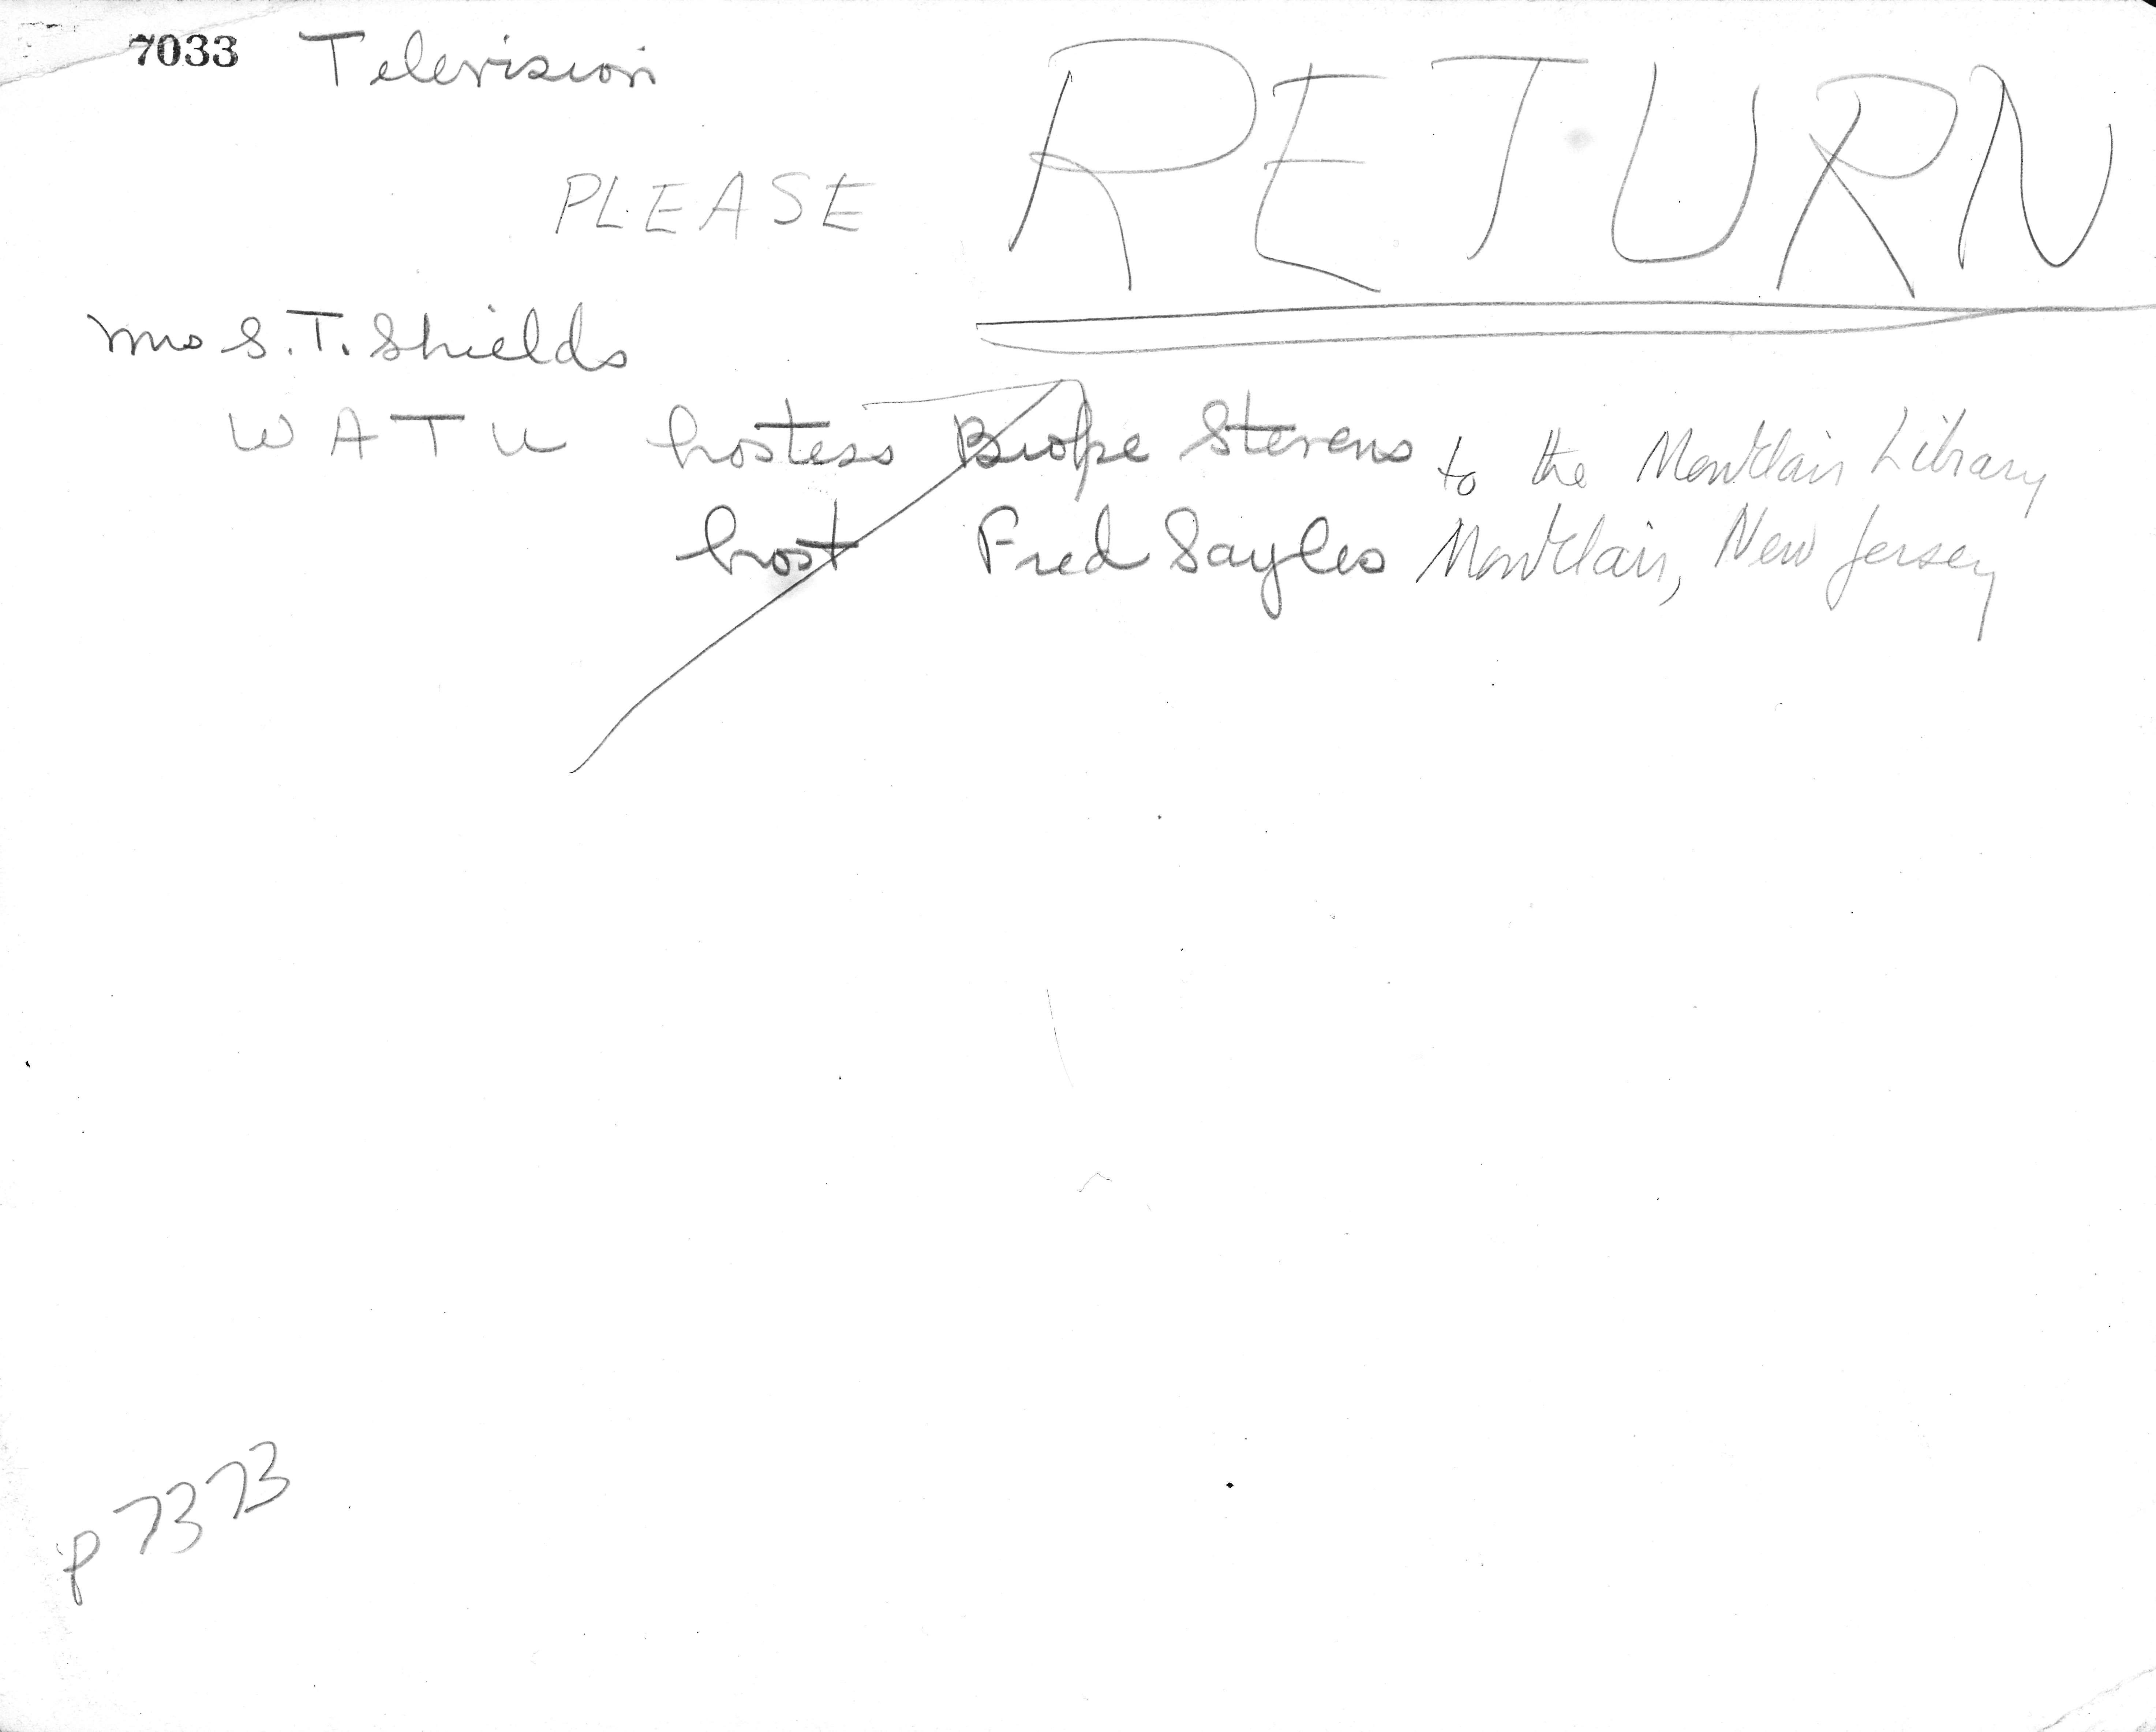 7033 Television
PLEASE RETURN
Mrs S.T. Shields
WATU hostess Stevens to the Montclair Library
host Fred Sayles Montclair, New Jersey
p7373